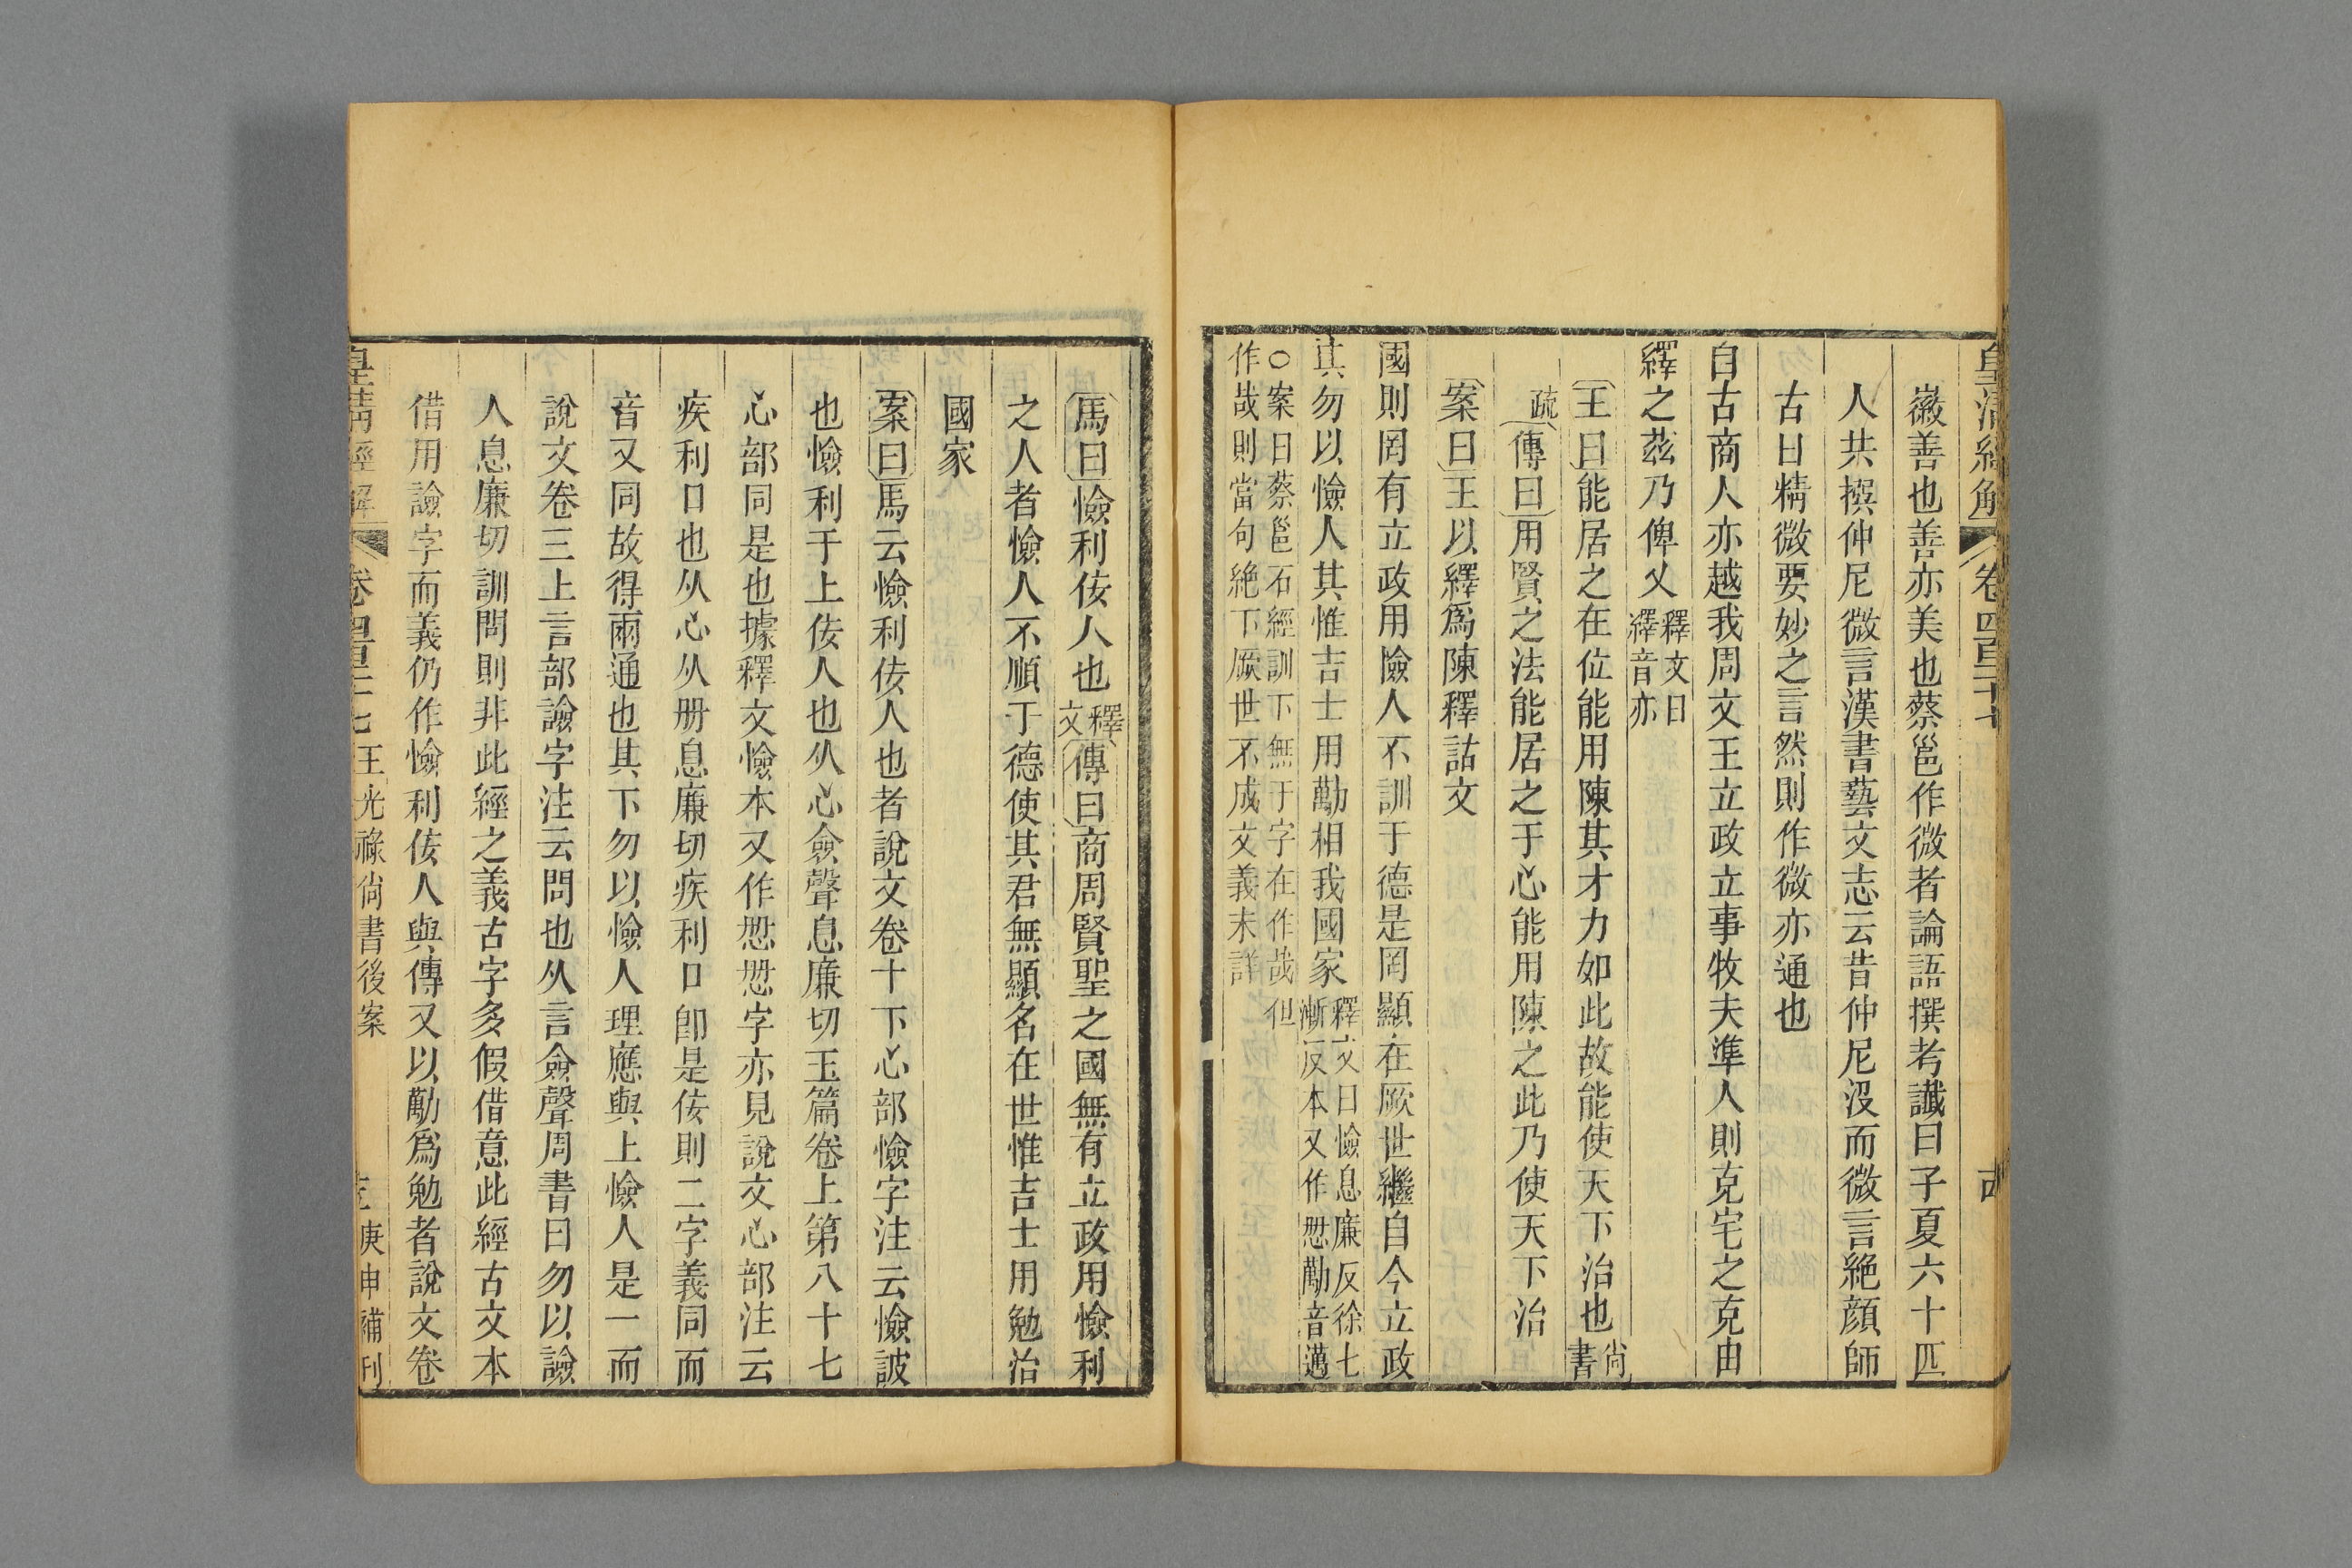 皇清經解 卷四百二十七 古
徽善也善亦美也蔡邕作微者論語撰考讖曰子夏六十四
人共撰仲尼微言漢書藝文志云昔仲尼沒而微言絶顔師
古曰精微要妙之言然則作微亦通也
自古商人亦越我周文王立政立事牧夫準人則克宅之克由
繹之茲乃俾乂釋文曰繹音亦
王曰能居之在位能用陳其才力如此故能使天下治也尙書
疏傳曰用賢之法能居之于心能用陳之此乃使天下治
案曰王以繹爲陳釋詁文
國則罔有立政用憸人不訓于德是罔顯在厥世繼自今立政
其勿以憸人其惟吉士用勱相我國家釋文曰憸息廉反徐七漸反本又作㦓勱音邁
○案曰蔡邕石經訓下無于字在作哉但作哉則當句絶下厥世不成文義未詳
馬曰憸利佞人也釋文傳曰商周賢聖之國無有立政用憸利
之人者憸人不順于德使其君無顯名在世惟吉士用勉治
國家
案曰馬云憸利佞人也者說文卷十下心部憸字注云憸詖
也憸利于上佞人也从心僉聲息廉切玉篇卷上第八十七
心部同是也據釋文憸本又作㦓㦓字亦見說文心部注云
疾利口也从心从册息廉切疾利口卽是佞則二字義同而
音又同故得兩通也其下勿以憸人理應與上憸人是一而
說文卷三上言部譣字注云問也从言僉聲周書曰勿以譣
人息廉切訓問則非此經之義古字多假借意此經古文本
借用譣字而義仍作憸利佞人與傳又以勱爲勉者說文卷
皇清經解 卷四百二十七 王光祿尙書後案 庚申補刊